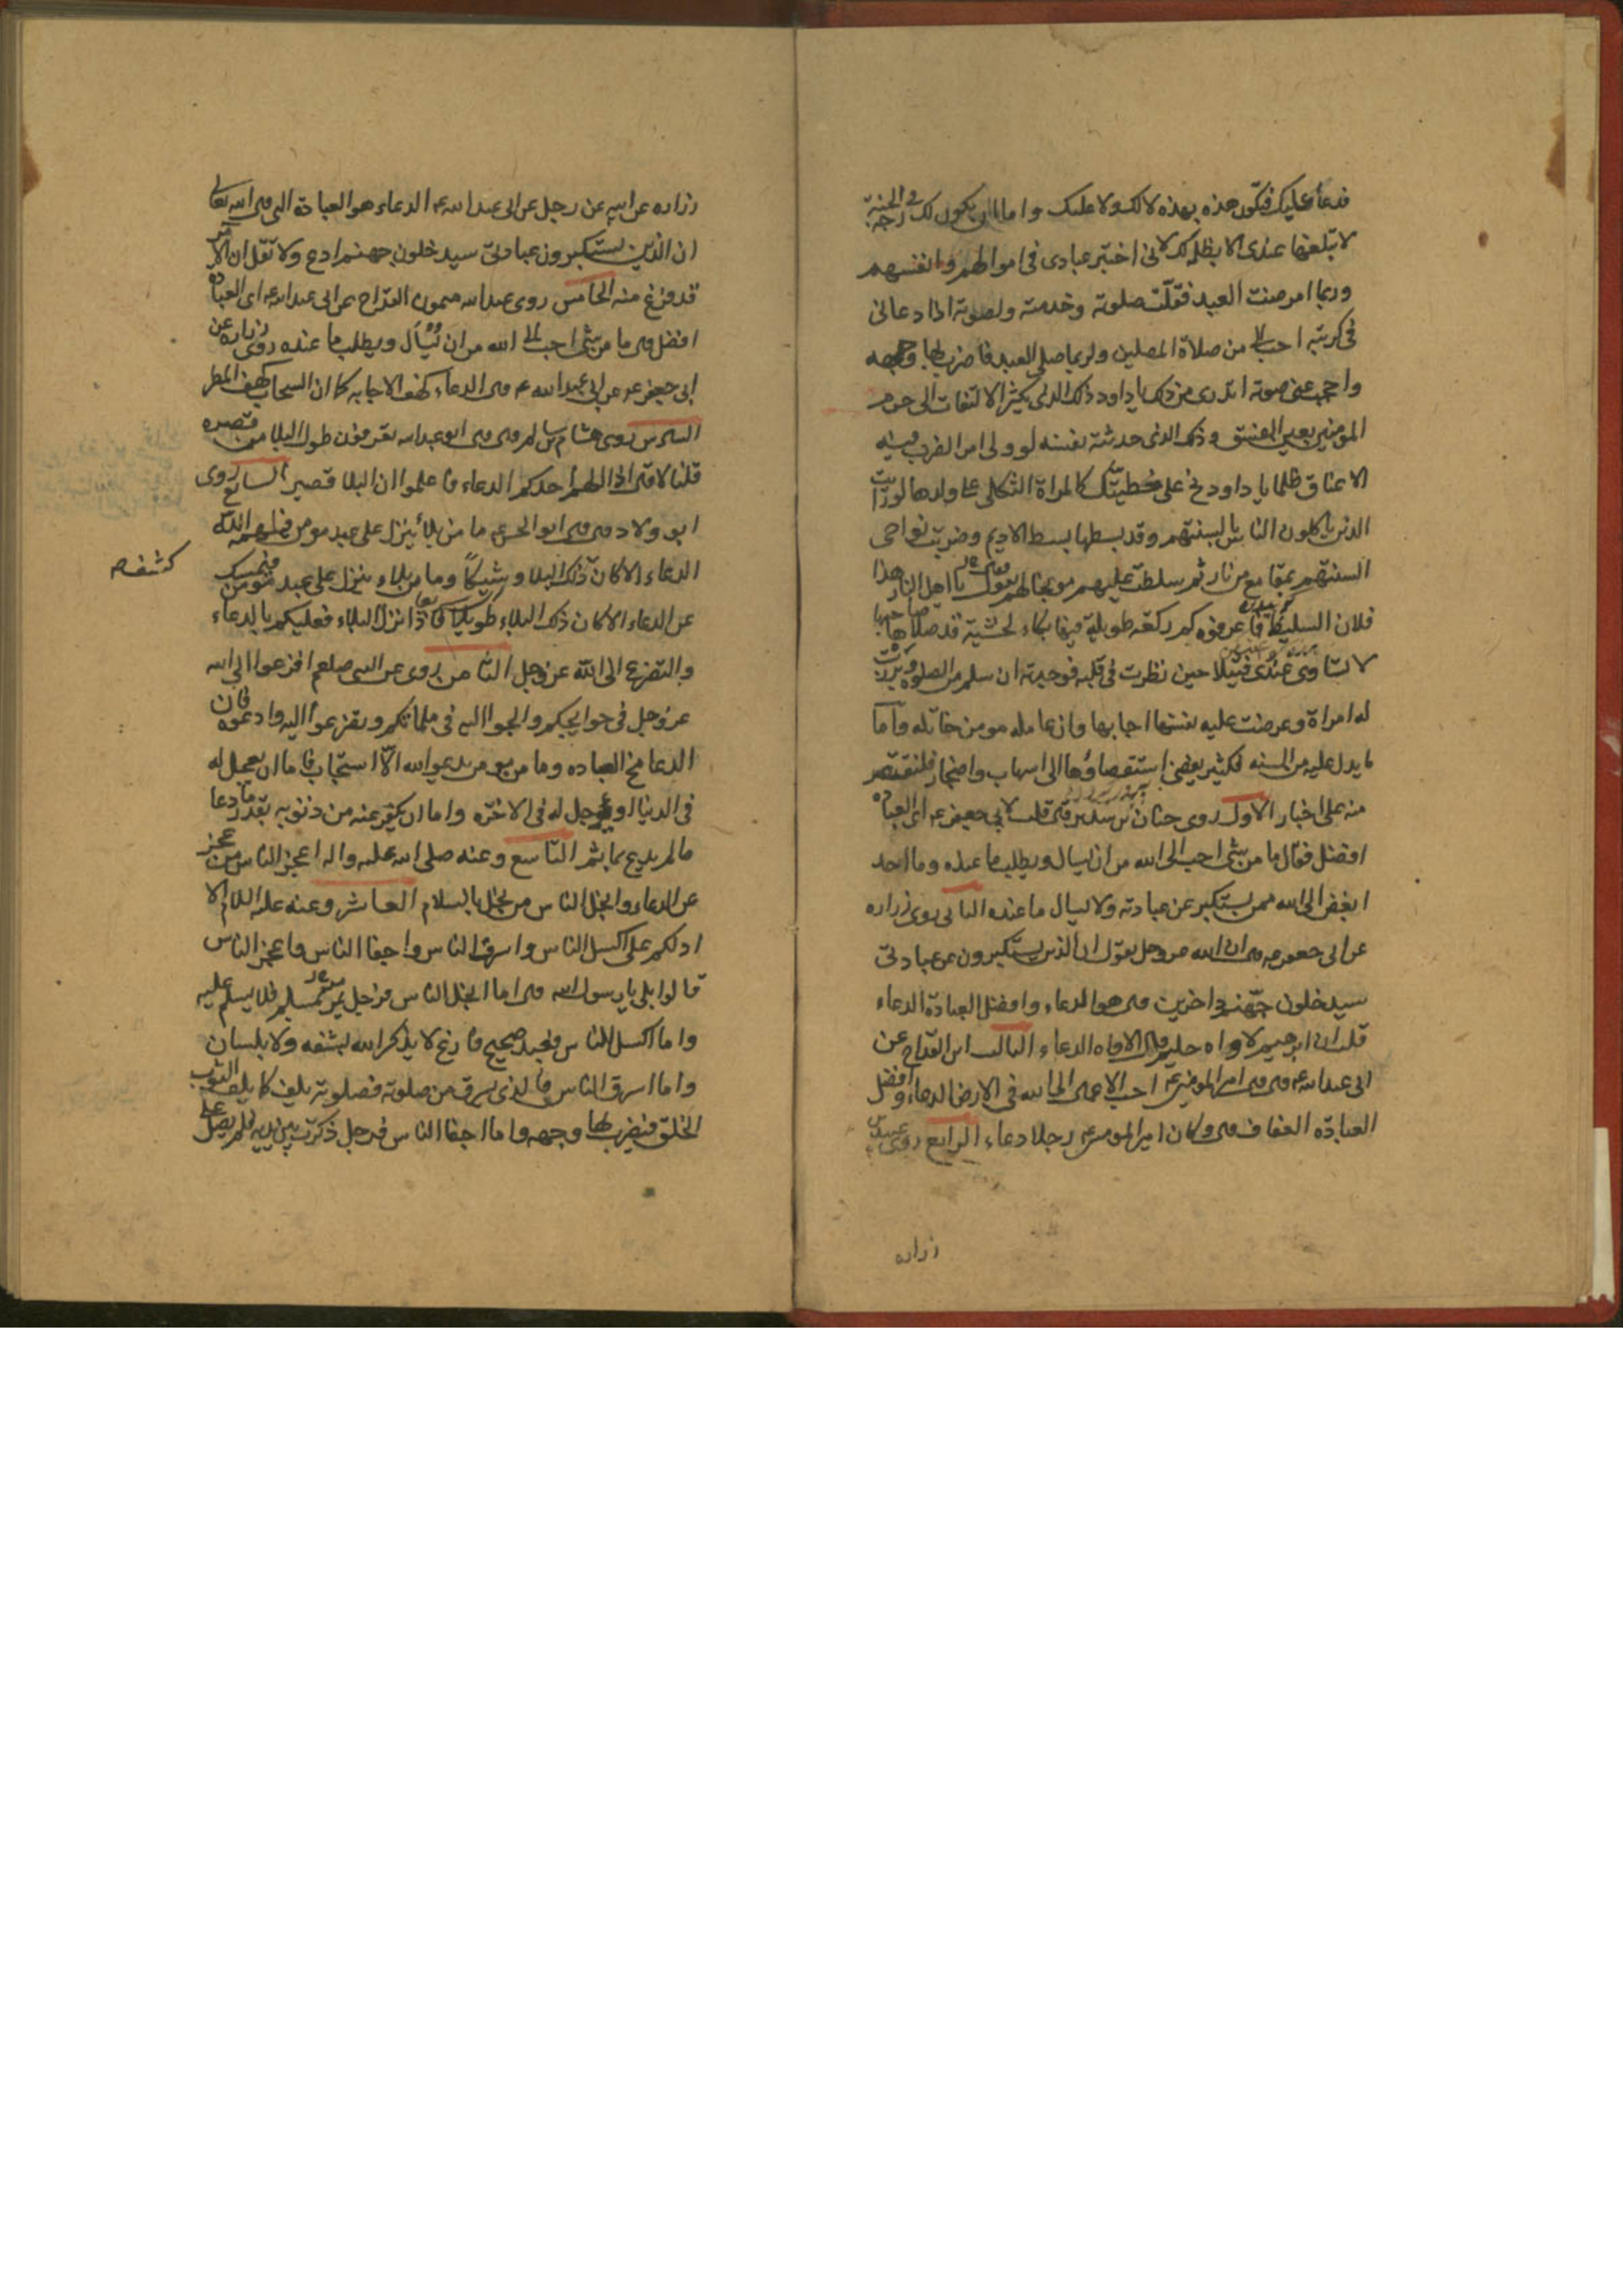 فدعا عليك فتكون هذه بهذه لا لك ولا عليك واما ان يكون لك درجة في الجنة
لا تبلغها عندي الا بظلمه لك لاني اختبر عبادي في اموالهم وانفسهم
وربما امرضت العبد فقلت صلوته وخدمته ولصوته اذا دعاني
في كربته احب الي من صلاة المصلين ولربما صلى العبد فاضرب بها وجهه
واحجب عني صوته اتدري من ذلك يا داود ذلك الذي يكثر الالتفات الى حرم
المومنين بعين الفسق وذلك الذي حدثته نفسه لو ولي امرا لضرب فيه
الاعناق ظلما يا داود نح على خطيئتك كالمراة الثكلى على ولدها لو رايت
الذين ياكلون الناس بالسنتهم وقد بسطتها بسط الاديم وضربت نواحي
السنتهم بمقامع من نار ثم سلطت عليهم موبخا لهم يقول يا اهل النار هذا
فلان السليط فاعرفوه كم ركعة طويلة فيها بكاء لخشية قد صلاها صاحبها
لا تساوي عندي فتيلا حين نظرت في قلبه فوجدته ان سلم من الصلوة وبرزت
له امراة وعرضت عليه نفسها اجابها وان عامله مومن خاتله واما
ما يدل عليه من السنه فكثير يفضي استقصاؤها الى اسهاب واضجار فلنقتصر
منه على اخبار الاول روى حنان بن سدير قال قلت لابي جعفر ع اي العبادة
افضل فقال ما من شي احب الى الله من ان يسال ويطلب ما عنده وما احد
ابغض الى الله ممن يستكبر عن عبادته ولا يسال ما عنده الثاني روى زراره
عن ابي جعفر ع قال ان الله عز وجل يقول ان الذين يستكبرون عن عبادتي
سيدخلون جهنم داخرين قال هو الدعاء وافضل العبادة الدعاء
قلت ان ابرهيم لاواه حليم قال الاواه الدعاء الثالث ابن القداح عن
ابي عبد الله ع قال قال امير المومنين ع احب الاعمال الى الله في الارض الدعاء وافضل
العبادة العفاف قال وكان امير المومنين ع رجلا دعاء الرابع روى عبيد بن
زراره
زراره عن ابيه عن رجل عن ابي عبد الله ع الدعاء هو العبادة التي قال الله تعالى
ان الذين يستكبرون عن عبادتي سيدخلون جهنم ادع ولا تقل ان الامر
قد فرغ منه الخامس روى عبد الله ميمون القداح عن ابي عبد الله ع اي العبادة
افضل قال ما من شي احب الى الله من ان يسأل ويطلب ما عنده روى زراره عن
ابي جعفر ع عن ابي عبد الله ع قال الدعاء كهف الاجابه كما ان السحاب كهف المطر
السادس روى هشام بن سالم قال قال ابو عبد الله تعرفون طول البلا من قصره
قلنا لا قال اذا الهم احدكم الدعاء فاعلموا ان البلا قصير السابع روى
ابو ولاد قال قال ابو الحسن ع ما من بلاء ينزل على عبد مومن فيلهمه الله
الدعاء الا كان ذلك البلا وشيكا وما من بلاء ينزل على عبد مومن فيمسك
عن الدعاء الا كان ذلك البلاء طويلا فاذا نزل البلاء فعليكم بالدعاء
والتضرع الى الله عز وجل الثامن روى عن النبي صلعم افزعوا الى الله
عز وجل في حوايجكم والجوا اليه في ملماتكم وتضرعوا اليه وادعوه فان
الدعا مخ العباده وما من مومن يدعو الله الا استجاب فاما ان يعجل له
في الدنيا او يوجل له في الاخره واما ان يكفر عنه من ذنوبه بقدر ما دعا
ما لم يدع بماثم التاسع وعنه صلى الله عليه واله اعجز الناس من عجز
عن الدعاء وابخل الناس من بخل بالسلام العاشر وعنه عليه السلام الا
ادلكم على اكسل الناس واسرق الناس واجفا الناس واعجز الناس
قالوا بلى يا رسول الله قال اما ابخل الناس فرجل يمر بمسلم فلا يسلم عليه
واما اكسل الناس فعبد صحيح فارغ لا يذكر الله بشفه ولا بلسان
واما اسرق الناس فالذي يسرق من صلوته فصلوته تلف كما يلف الثوب
الخلق فيضرب بها وجهه واما اجفا الناس فرجل ذكرت بين يديه فلم يصل علي